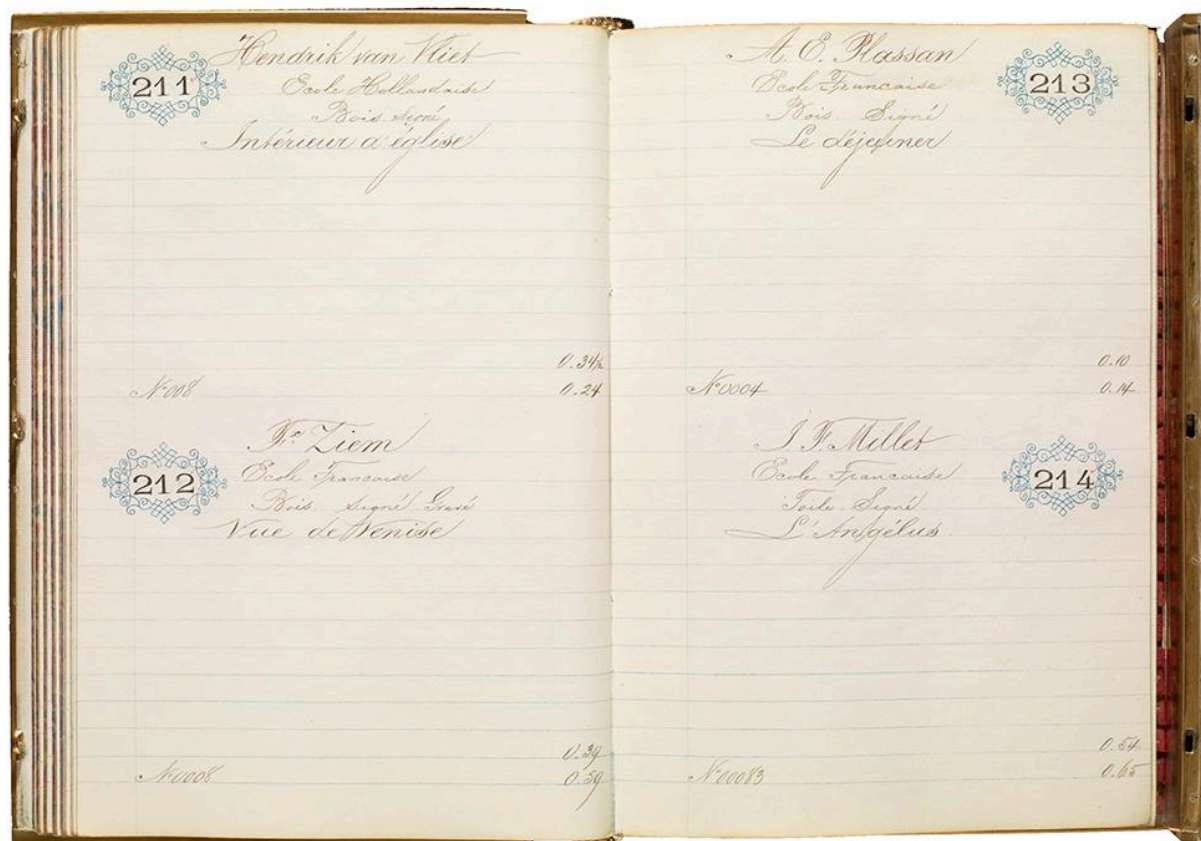 211
Hendrik van Vliet
Ecole Hollandaise
Bois Signé
Intérieur d'église
0.34½
N°008 0.24
212
Fx Ziem
Ecole Francaise
Bois Signé Gravé
Vue de Venise
0.39
N°0008 0.59
213
A. E. Plassan
Ecole Francaise
Bois Signé
Le déjeuner
0.10
N°0004 0.14
214
J. F. Millet
Ecole Francaise
Toile Signé
L'Angélus
0.54
N°00083 0.65